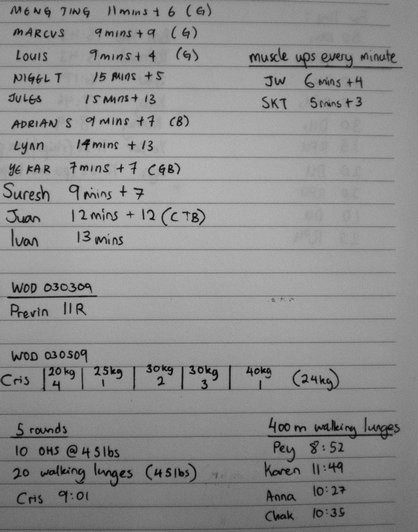 MENG TING 11mins + 6 (G)
MARCUS 9mins + 9 (G)
LOUIS 9mins + 4 (G)
NIGEL T 15 MINS + 5
JULES 15 MINS + 13
ADRIAN S 9 MINS + 7 (B)
Lynn 14mins + 13
YE KAR 7mins + 7 (GB)
Suresh 9mins + 7
Juan 12mins + 12 (CTB)
Ivan 13 mins
muscle ups every minute
JW 6mins +4
SKT 5mins +3
WOD 030309
Previn 11R
WOD 030509
Cris | 20kg 4 | 25kg 1 | 30kg 2 | 30kg 3 | 40kg 1 (24kg)
5 rounds
10 OHS @ 45lbs
20 walking lunges (45lbs)
Cris 9:01
400m walking lunges
Pey 8:52
Karen 11:49
Anna 10:27
Chak 10:35